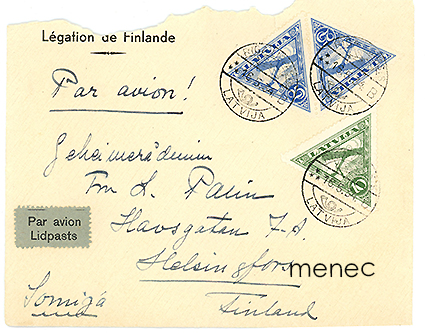 Légation de Finlande
Par avion!
LATVIJA
LATVIJA
LATVIJA
LATVIJA
Geheimerådinnan
Fru L. Palin
Par avion
Lidpasts
Havsgatan 7. A.
Helsingfors
menec
Somijā
Finland